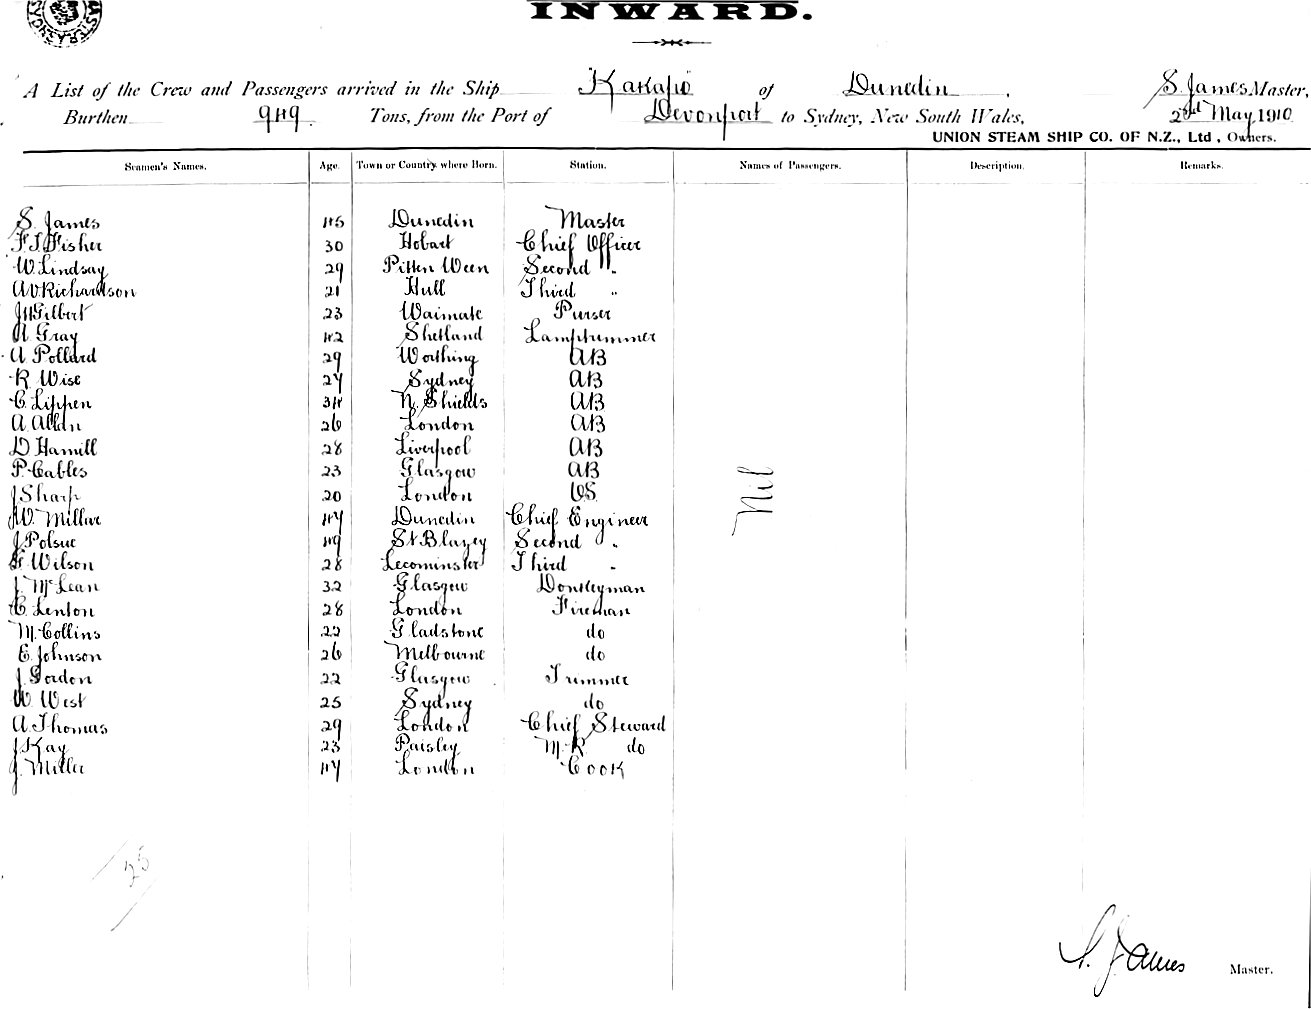 INWARD.
A List of the Crew and Passengers arrived in the Ship "Kakapo" of Dunedin, S. James Master,
Burthen 949 Tons, from the Port of Devonport to Sydney, New South Wales, 2nd May 1910
UNION STEAM SHIP CO. OF N.Z., Ltd., Owners.
Seamen's Names. Age. Town or Country where Born. Station. Names of Passengers. Description. Remarks.
S. James 45 Dunedin Master
F J Fisher 30 Hobart Chief Officer
W. Lindsay 29 Pitten Ween Second "
A V Richardson 21 Hull Third "
J H Gilbert 23 Waimate Purser
A Gray 42 Shetland Lamptrimmer
A Pollard 29 Worthing AB
R Wise 27 Sydney AB
C. Lippen 34 N. Shields AB
A. Allan 26 London AB
D Hamill 28 Liverpool AB
P. Cables 23 Glasgow AB
J Sharp 20 London OS
Nil
J W. Miller 47 Dunedin Chief Engineer
J Polsue 49 St Blazey Second "
F Wilson 28 Leominster Third "
J McLean 32 Glasgow Donkeyman
C. Lenton 28 London Fireman
M. Collins 22 Gladstone do
E. Johnson 26 Melbourne do
J. Gordon 22 Glasgow Trimmer
W West 25 Sydney do
A. Thomas 29 London Chief Steward
J Kay 23 Paisley M. R do
J. Miller 47 London Cook
25
S. James Master.